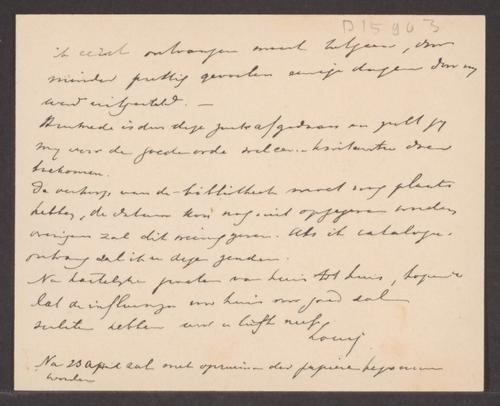 D15903
ik eerst ontvangen moest hetgeen, door
minder prettig gevoelen eenige dagen door mij
werd uitgesteld. —
Hiermede is dus deze zaak afgedaan en zult gij
mij voor de goede orde wel een kwitantie doen
toekomen.
De verkoop van de bibliotheek moet nog plaats
hebben, de datum kon nog niet opgegeven worden
overigens zal dit weinig geven. Als ik catalogus
ontvang zal ik u deze zenden.
Na hartelijke groeten van huis tot huis, hopende
dat de influenza uw huis voor goed zal
verlaten hebben uw u liefh neef,
Louis
Na 23 April zal met opruimen der papieren begonnen
worden